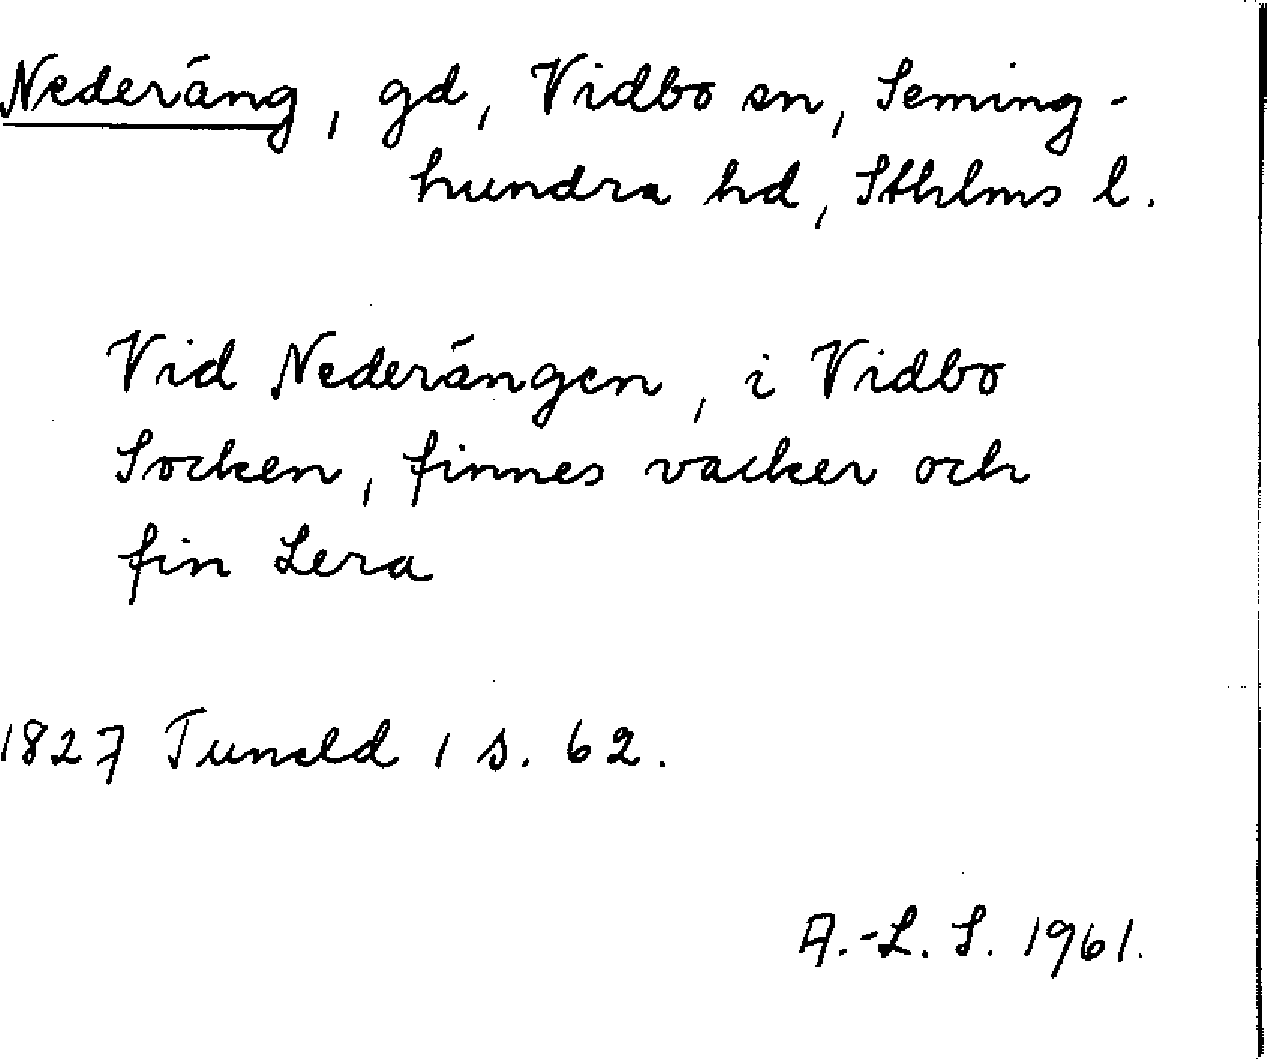 Nederäng, gd, Vidbo sn, Seming-
hundra hd, Sthlms l.
Vid Nederängen, i Vidbo
Socken, finnes vacker och
fin Lera
1827 Tuneld 1 s. 62.
A.-L. S. 1961.